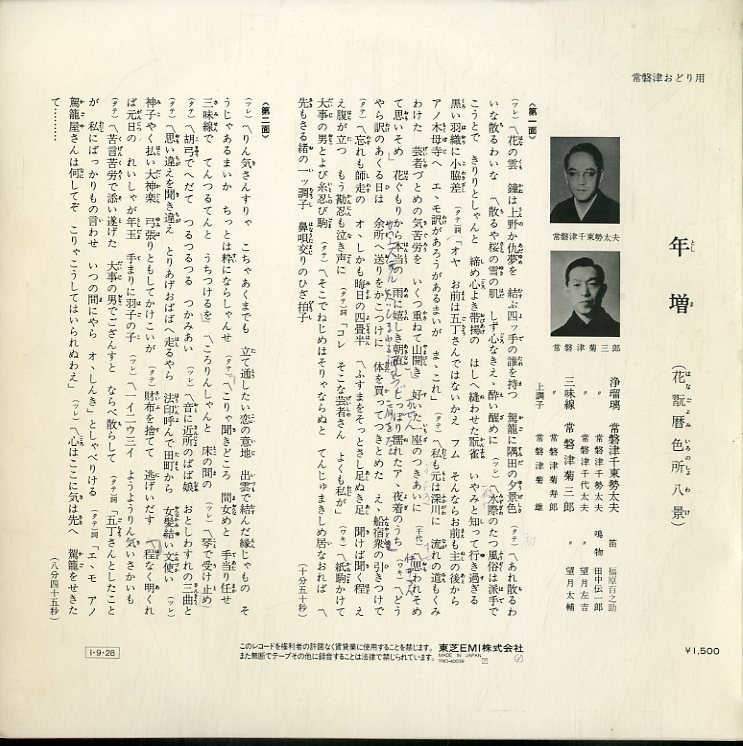 常磐津おどり用
年増
とし
ま
(花翫暦色所八景)
はなごよみいろのしょわけ
浄瑠璃 常磐津千東勢太夫
〃 常磐津千勢太夫
〃 常磐津千代太夫
三味線 常磐津菊三郎
〃 常磐津菊寿郎
上調子 常磐津菊雄
笛 福原百之助
鳴物 田中伝一郎
〃 望月左吉
〃 望月太輔
常磐津千東勢太夫
常磐津菊三郎
〈第一面〉
(ツレ)〽花の雲 鐘は上野か仇夢を 結ぶ四ッ手の誰を待つ 駕籠に隅田の夕景色 (タテ)〽あれ散るわ
いな散るわいな 〽散るや桜の雪の肌 しず心なきえゝ酔い醒めに (ツレ)〽水際のたつ風俗は派手で
こうとで きりりとしゃんと 締め心よき帯揚の はしへ縫わせた翫雀 いやみと知って行き過ぎる
黒い羽織に小脇差 (タテ)詞「オヤ お前は五丁さんではないかえ フム そんならお前も主の後から
アノ木母寺へ エヽモ訳があろうがあるまいが まゝこれ」 (タテ)〽私も元は深川に 流れの道もくみ
わけた 芸者づとめの気苦労を いくつ重ねて山開き 好いた座のつきあいに (千代)〽思われそめ
て思いそめ 花ぐもりから本当の 雨に嬉しき朝直し しっぽり濡れたア、夜着のうち (ワキ)〽どう
やら訳のあくる日は 余所へ送りをかこつけに 体を買ってつきとめた えゝ船宿衆の引きつけで
(タテ)〽忘れも師走の オヽしかも晦日の四畳半 〽ふすまをそっとさし足ぬき足 聞けば聞く程 え
え腹が立つ もう勘忍も泣き声に (タテ)詞「コレ そこな芸者さん よくも私が」 (ワキ)〽紙駒かけて
大事の男とよび糸忍び駒 (タテ)〽そこでねじめはそりゃならぬと てんじゅまきしめ居なおれば 〽
先もさる緒の一ッ調子 鼻唄交りのひざ拍子
(十分五十秒)
〈第二面〉
(ツレ)〽りん気さんすりゃ こちゃあくまでも 立て通したい恋の意地 出雲で結んだ縁じゃもの そ
うじゃあるまいか ちっとは粋にならしゃんせ (タテ)〽こりゃ聞きどころ 間女めと 手当り任せ
三味線で てんつるてんと うちつけるを」 〽ころりんしゃんと 床の間の (ツレ)〽琴で受け止め
(タテ)〽胡弓でへだて つるつるつる つかみあい (ツレ)〽音に近所のばば娘 おとしわすれの三曲と
(タテ)〽思い違えを聞き違え とりあげおばばへ走るやら 法印呼んで田町から 女髪結い文使い (ツレ)
神子やく払い大神楽 弓張りともしてかけこいが (タテ)〽財布を捨てて 逃げいだす (ツレ)〽程なく明くれ
ば元日の れいしゃが年玉 手まりに羽子の子 (ツレ)〽一イ二ウ三イ ようようりん気いさかいも
(タテ)〽苦言苦労で添い遂げた 大事の男でござんすと ならべ散らして (タテ)詞「五丁さんとしたこと
が 私にばっかりもの言わせ いつの間にやら オヽしんき」としゃべりける (タテ)詞「エヽモ アノ
駕籠屋さんは何してぞ こりゃこうしてはいられぬわえ」 (ツレ)〽心はここに気は先へ 駕籠をせきた
て………
(八分四十五秒)
I-9-28
このレコードを権利者の許諾なく賃貸業に使用することを禁じます。
また無断でテープその他に録音することは法律で禁じられています。
東芝EMI株式会社
MADE IN JAPAN
THO-40039
¥1,500